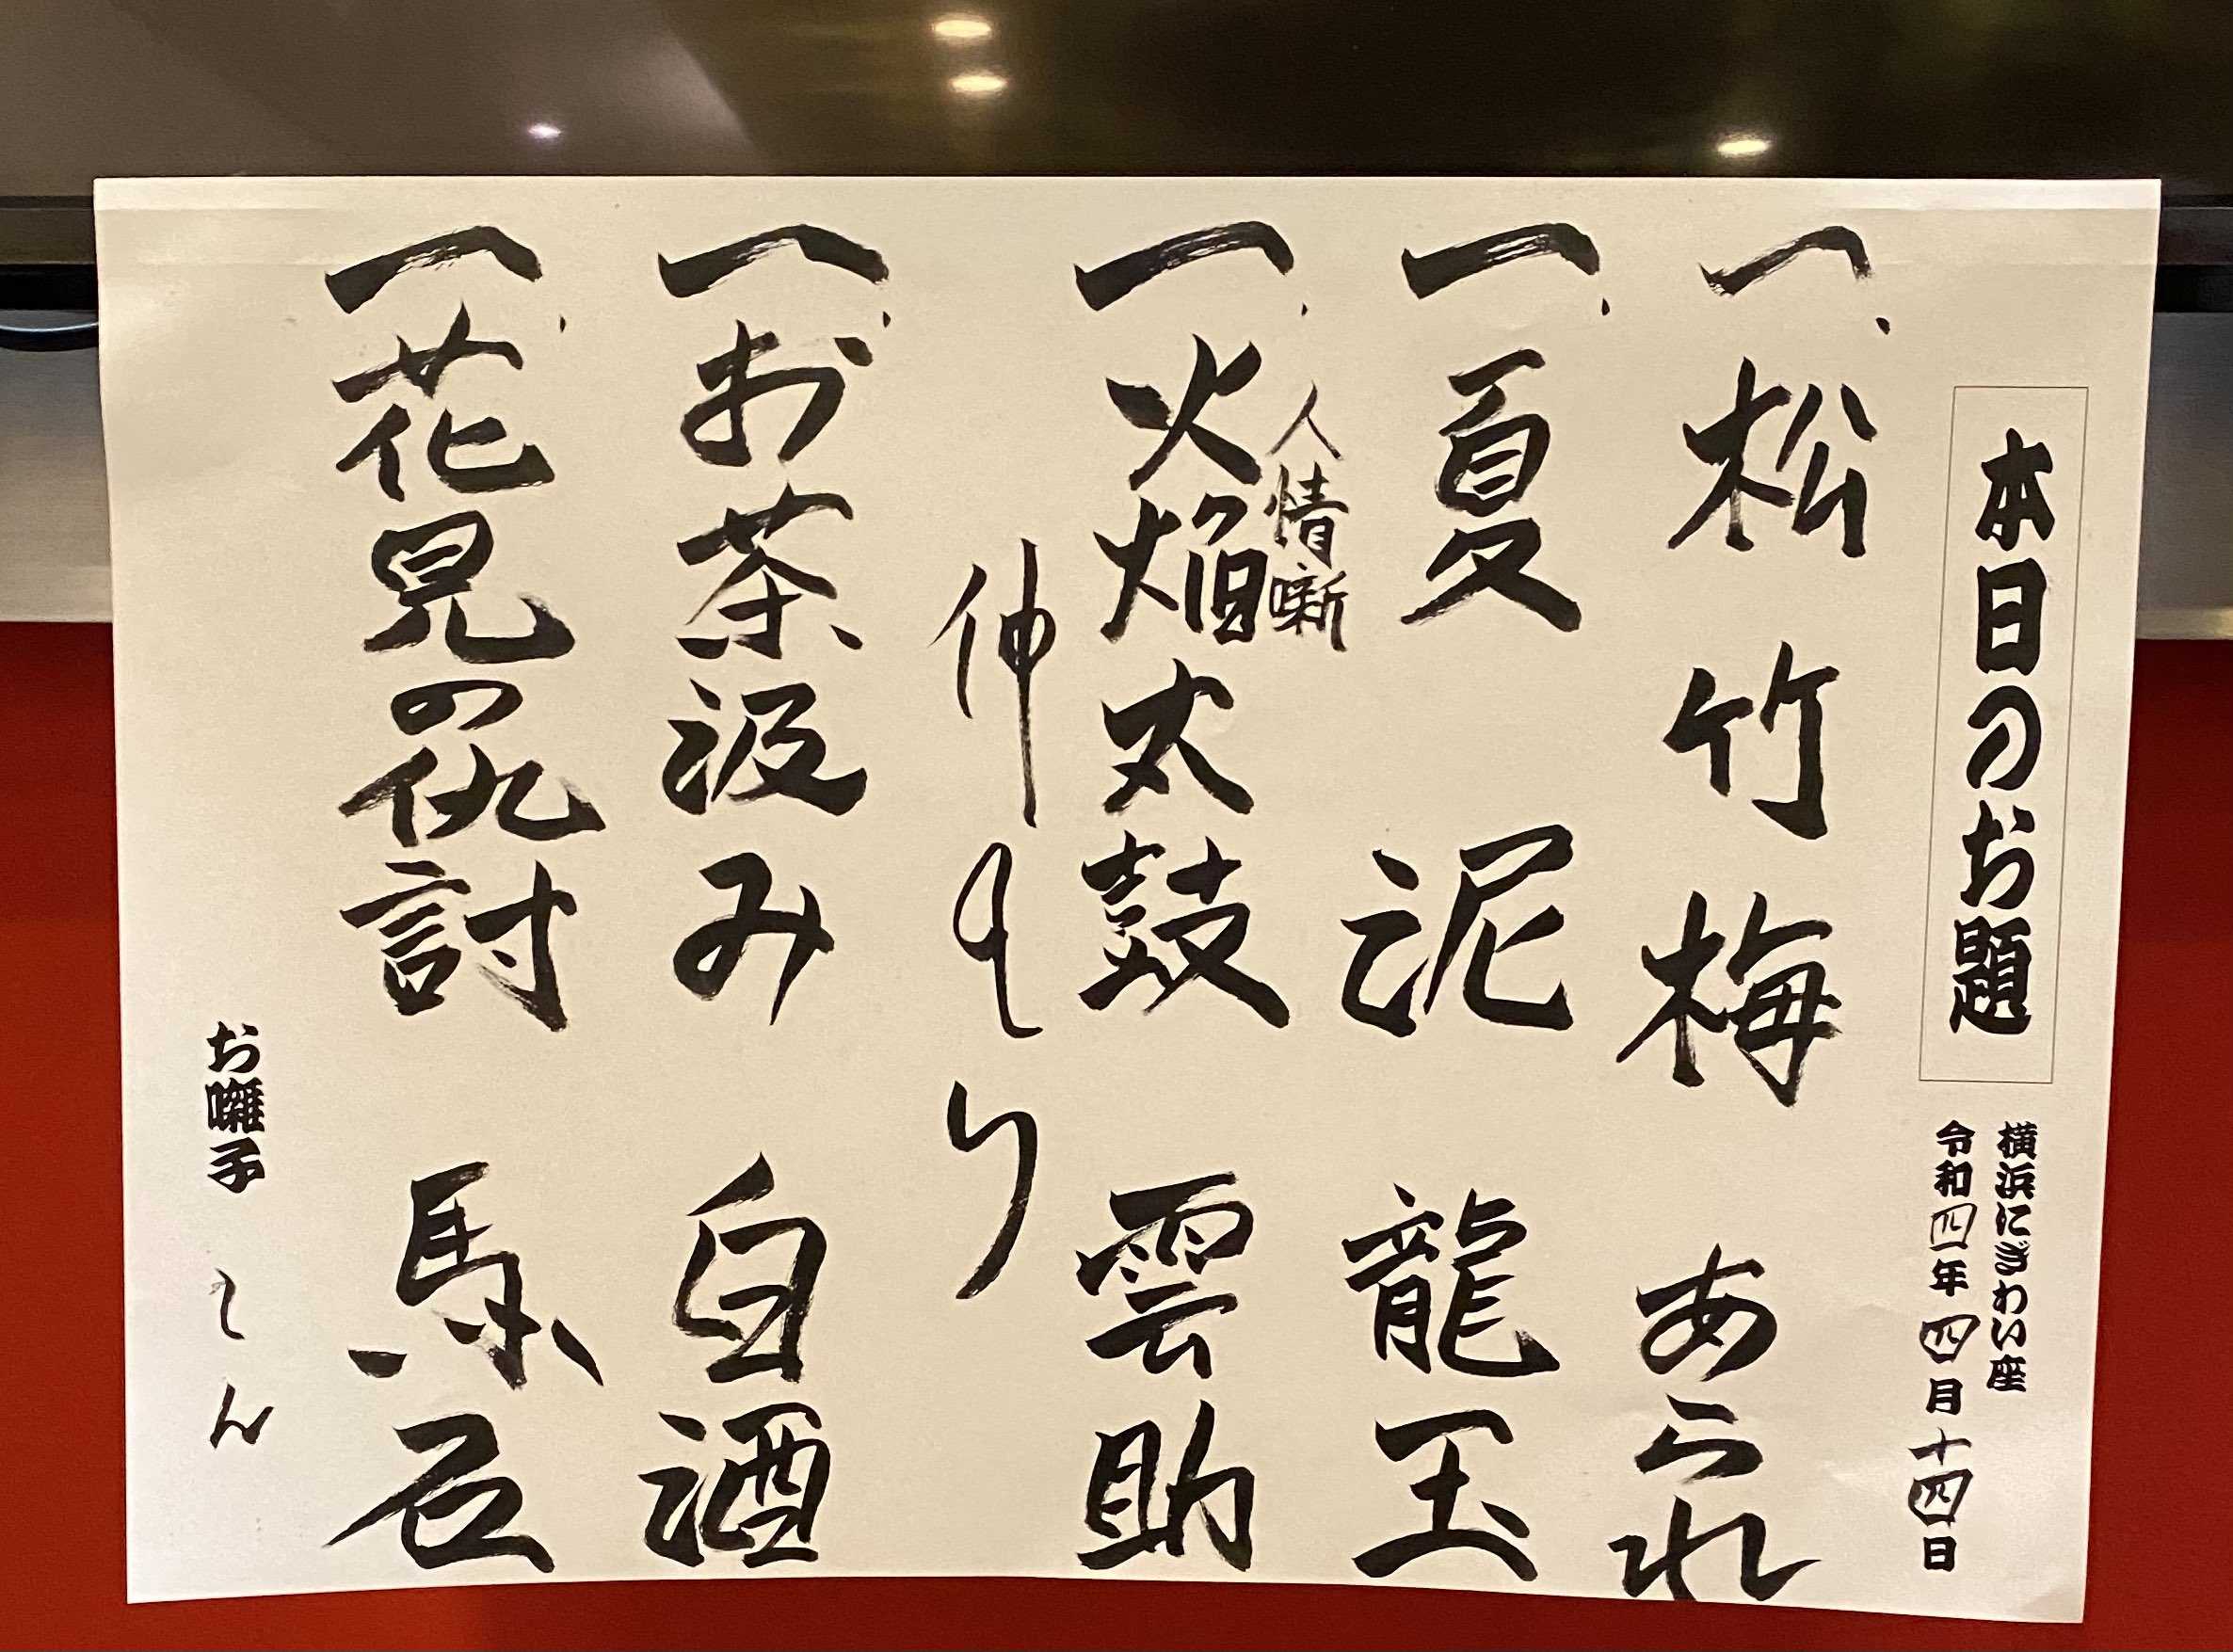 本日のお題
横浜にぎわい座
令和四年四月十四日
一、松竹梅 あられ
一、夏泥 龍玉
人情噺
一、火焔太鼓 雲助
仲入り
一、お茶汲み 白酒
一、花見の仇討 馬石
お囃子 てん